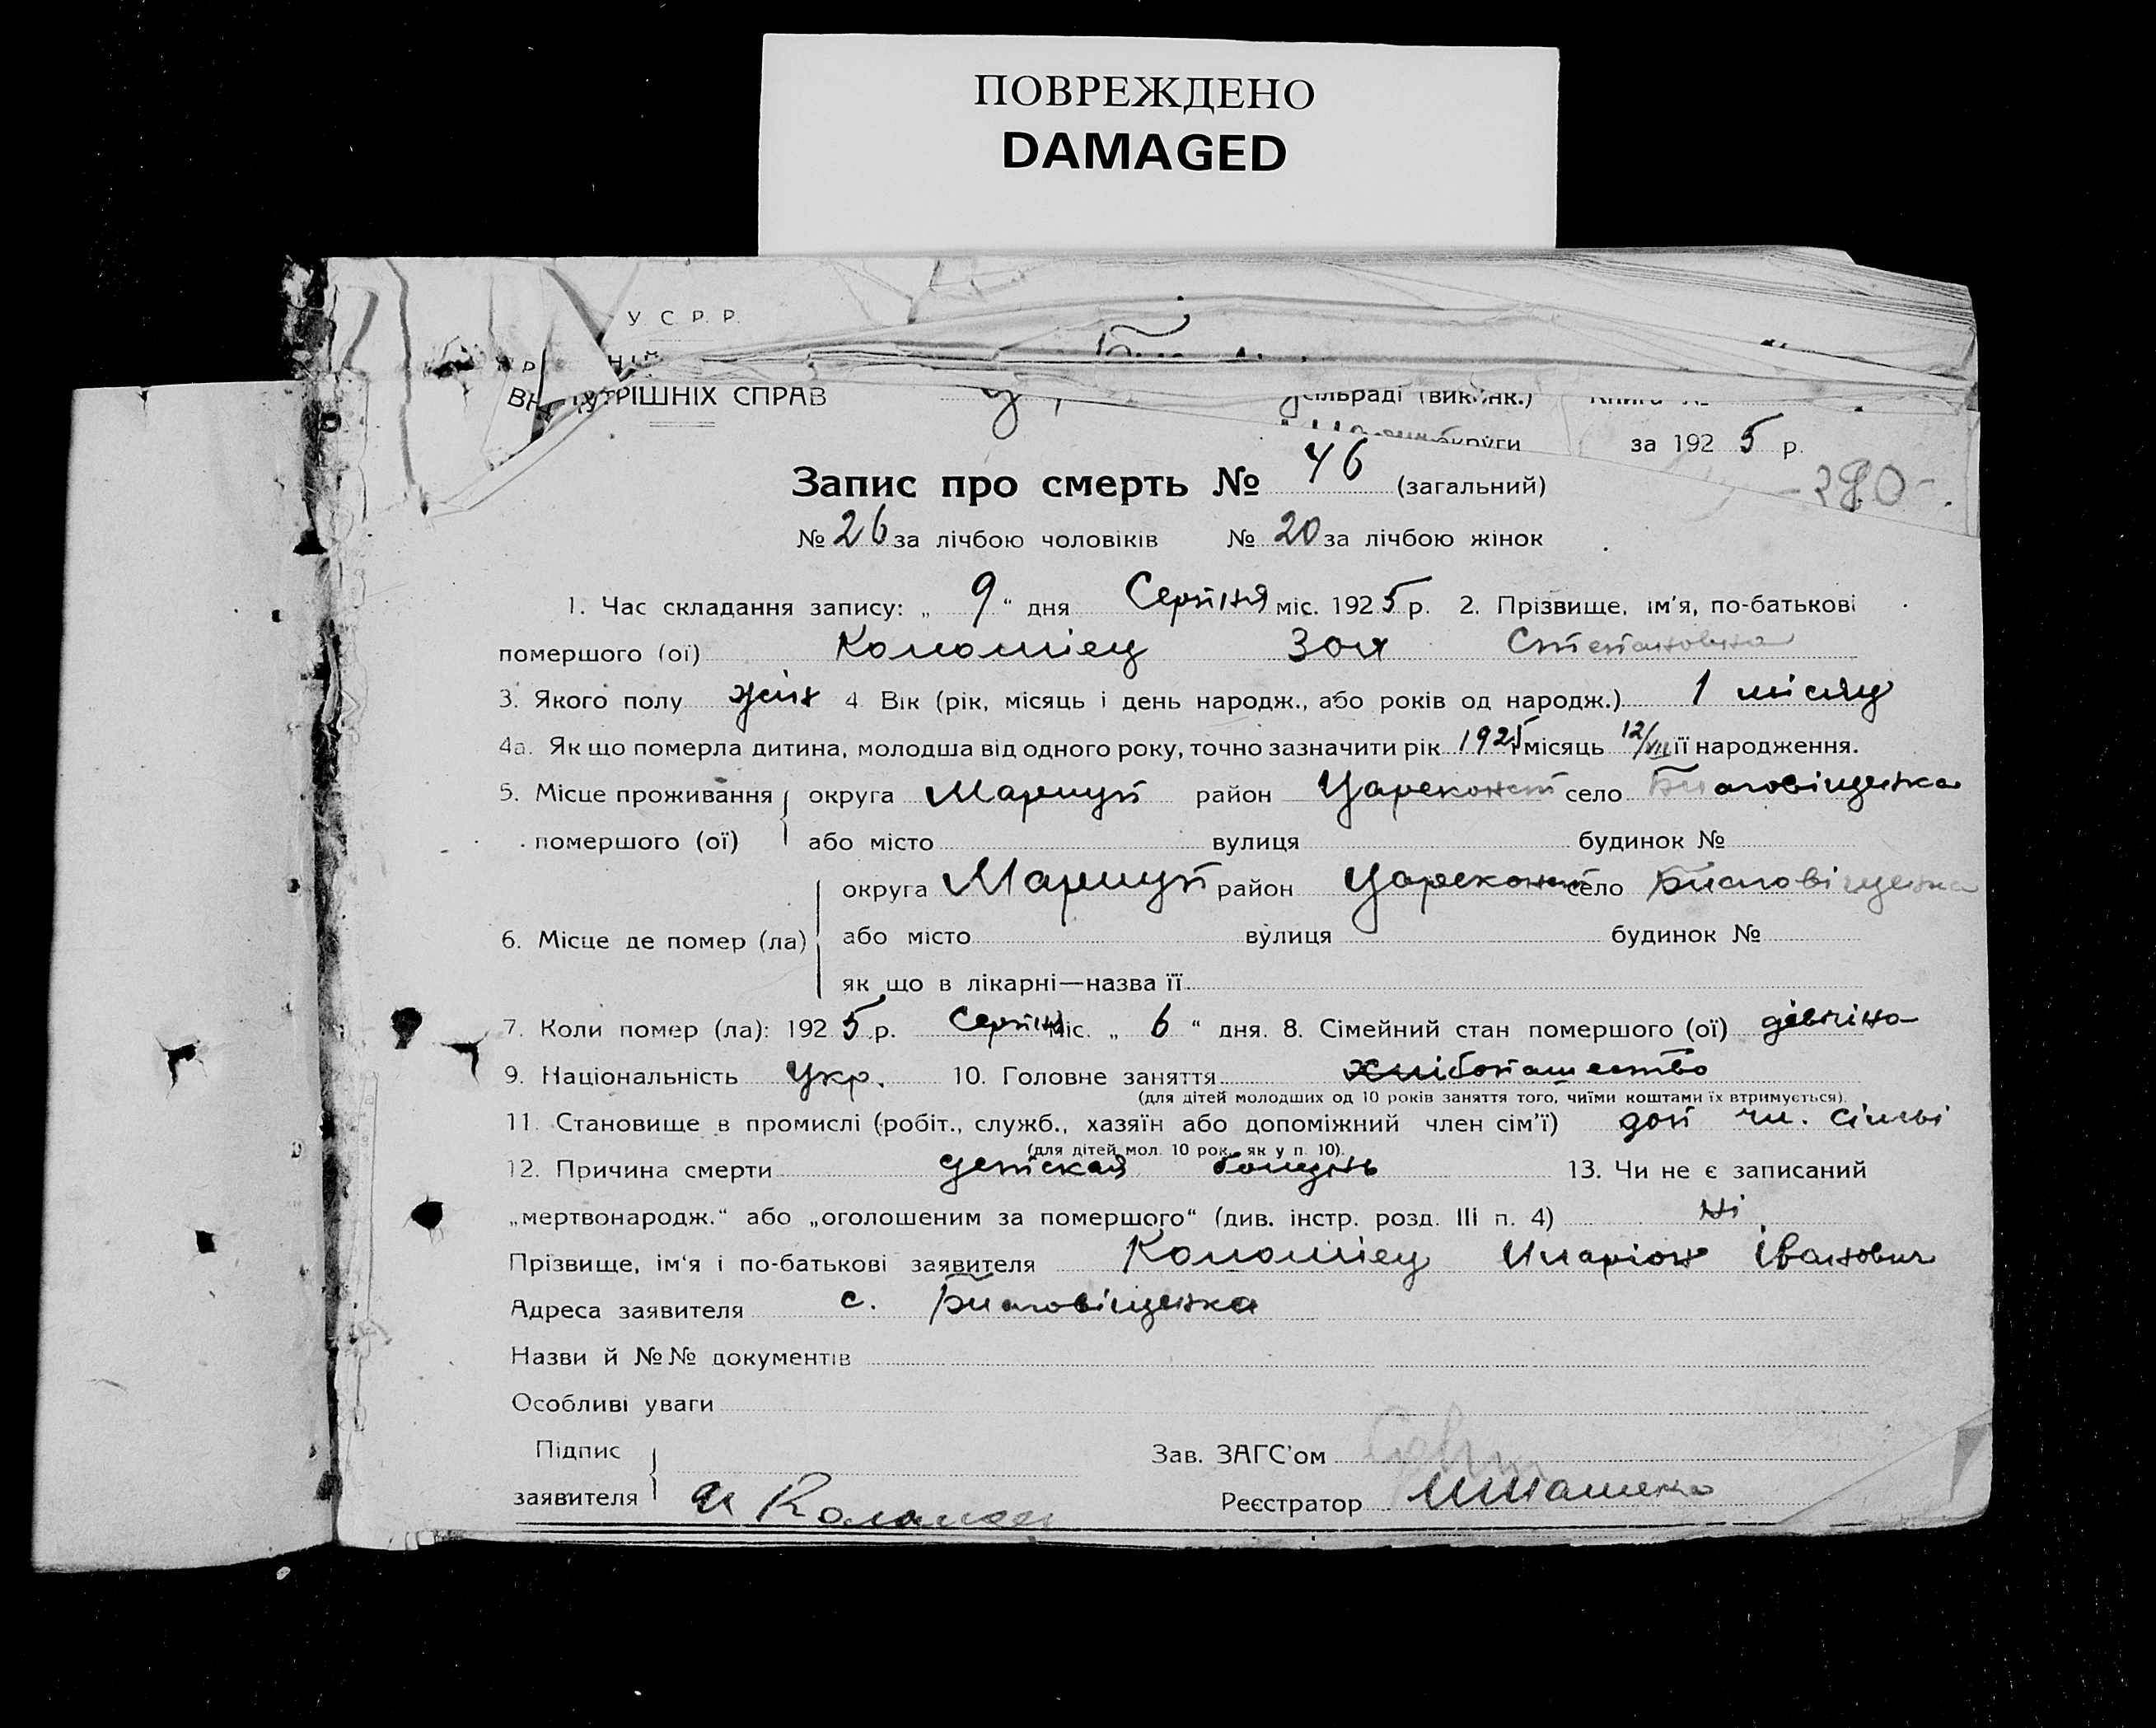 ПОВРЕЖДЕНО
DAMAGED
У. С. Р. Р.
ВНУТРІШНІХ СПРАВ сільраді (викинк.)
округи за 1925 р.
Запис про смерть № 46 (загальний)
№ 26 за лічбою чоловіків № 20 за лічбою жінок
1. Час складання запису: „ 9 “ дня Серпня міс. 1925 р. 2. Прізвище, ім'я, по-батькові
помершого (ої) Коломіец Зоя Степановна
3. Якого полу жін 4 Вік (рік, місяць і день народж., або років од народж.) 1 місяц
4а. Як що померла дитина, молодша від одного року, точно зазначити рік 1925 місяць 12/VII її народження.
5. Місце проживання округа Мариуп район Цареконст село Благовіщенка
помершого (ої) або місто вулиця будинок №
округа Мариуп район Цареконст село Благовіщенка
6. Місце де помер (ла) або місто вулиця будинок №
як що в лікарні—назва її
7. Коли помер (ла): 1925 р. Серпня міс. „ 6 “ дня. 8. Сімейний стан помершого (ої) девчіна
9. Національність Укр. 10. Головне заняття хлібопашество
(для дітей молодших од 10 років заняття того, чиїми коштами їх втримується).
11. Становище в промислі (робіт., служб., хазяїн або допоміжний член сім'ї) доп чл. сімьі
(для дітей мол. 10 рок. як у п. 10).
12. Причина смерти детская болезнь 13. Чи не є записаний
„мертвонародж.“ або „оголошеним за помершого“ (див. інстр. розд. III п. 4) Ні
Прізвище, ім'я і по-батькові заявителя Коломіец Иларіон Іванович
Адреса заявителя с. Благовіщенка
Назви й №№ документів
Особливі уваги
Підпис Зав. ЗАГС'ом
заявителя И Коломиец Реєстратор